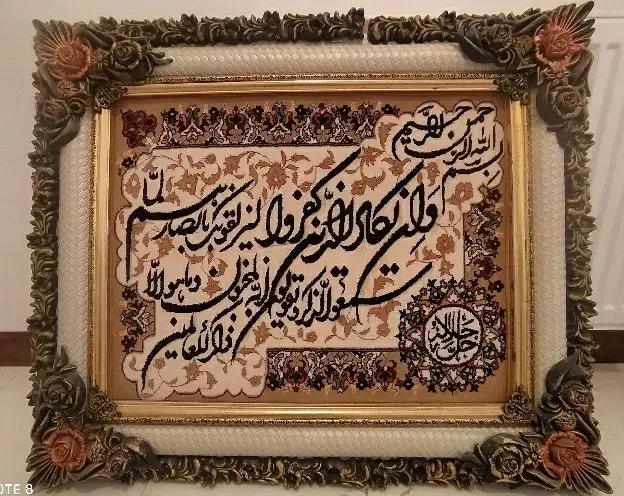 بسم الله الرحمن الرحیم
وان یکاد الذین کفروا لیزلقونک بابصارهم لما
سمعوا الذکر و یقولون انه لمجنون وما هو الا
ذکر للعالمین
جل جلاله
OTE 8